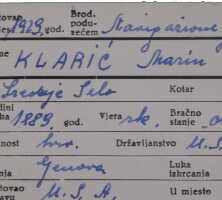 tovao
1929. god. Brod. podu-
zećem Navigazione
me KLARIĆ Marin
Srednje Selo Kotar
dini
ka 1889. god. Vjera rk. Bračno
stanje
nost hrv. Državljanstvo
nja Genova Luka
iskrcanja
tovao
avu U. S. A. U mjesto